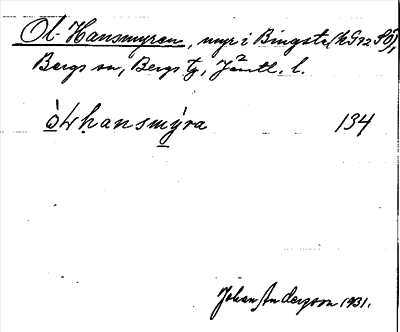 Ol-Hansmyren, myr i Bingsta (kG92 SÖ),
Bergs sn, Bergs tg, Jämtl. l.
òLhansmýra 134
Johan Anderzon 1931.